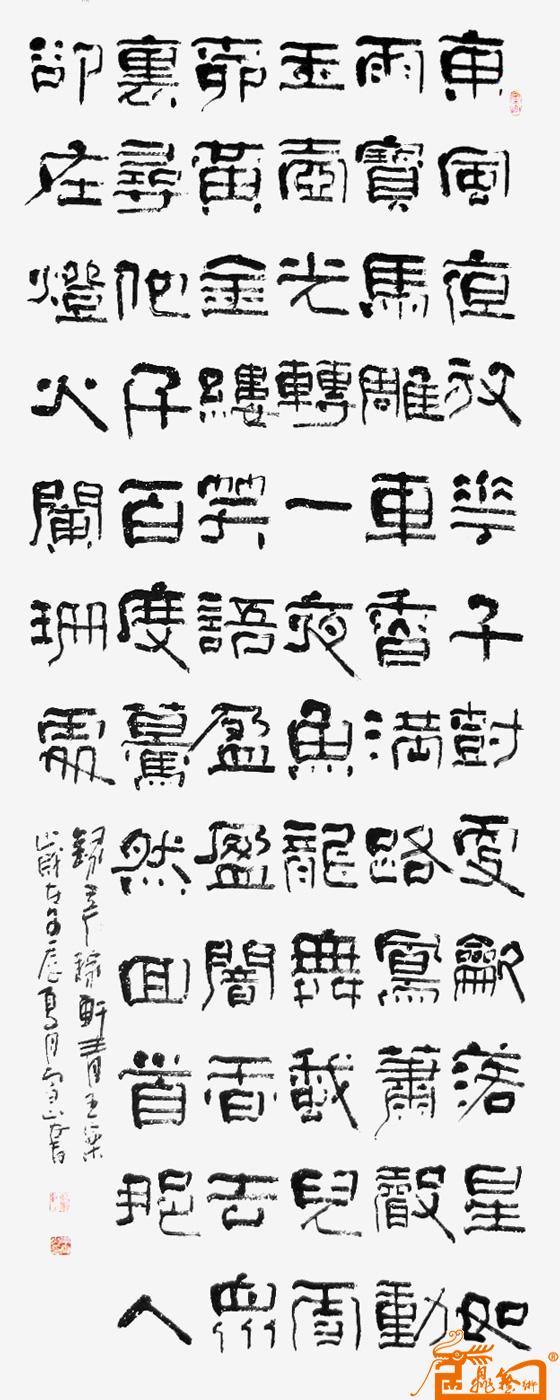 東風夜放花千樹更龡落星如
雨寶馬雕車香滿路鳳簫聲動
玉壺光轉一夜魚龍舞蛾兒雪
柳黃金縷笑語盈盈闇香去眾
裏尋他千百度驀然回首那人
卻在燈火闌珊處
錄辛稼軒青玉案
歲在夏月書